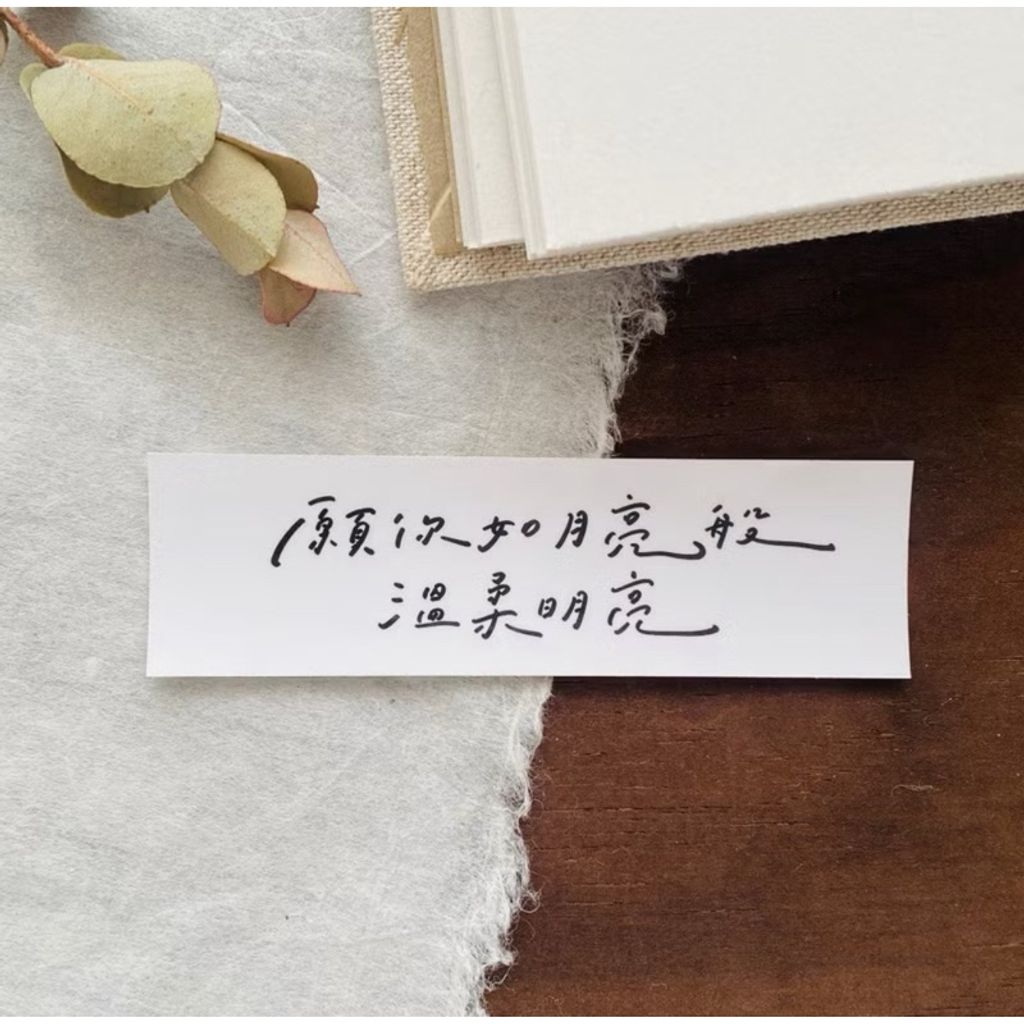 願你如月亮般
溫柔明亮